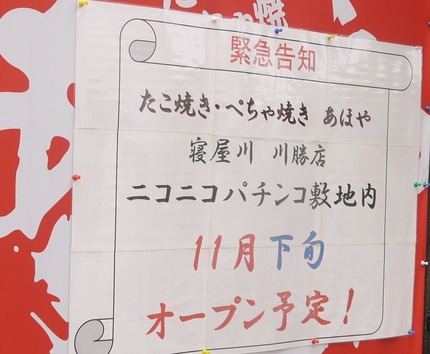 緊急告知
たこ焼き・ぺちゃ焼き あほや
寝屋川 川勝店
ニコニコパチンコ敷地内
11月下旬
オープン予定!